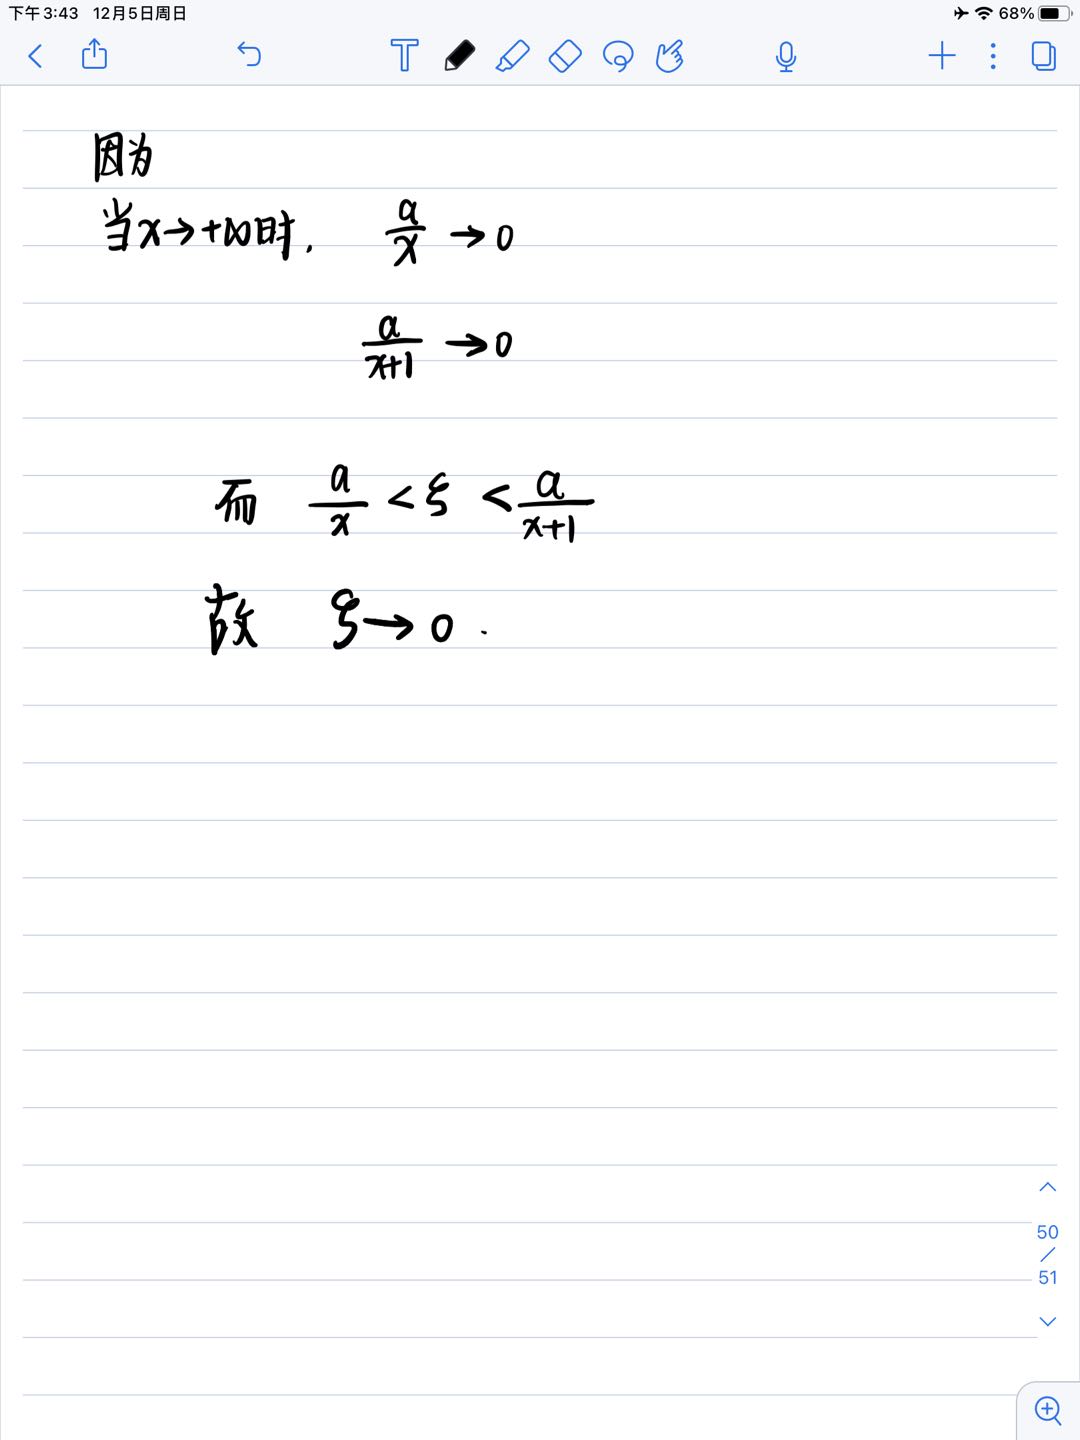 下午3:43 12月5日周日 68%
因为
当x→+∞时, a/x →0
a/(x+1) →0
而 a/x < ξ < a/(x+1)
故 ξ→0.
50
/
51